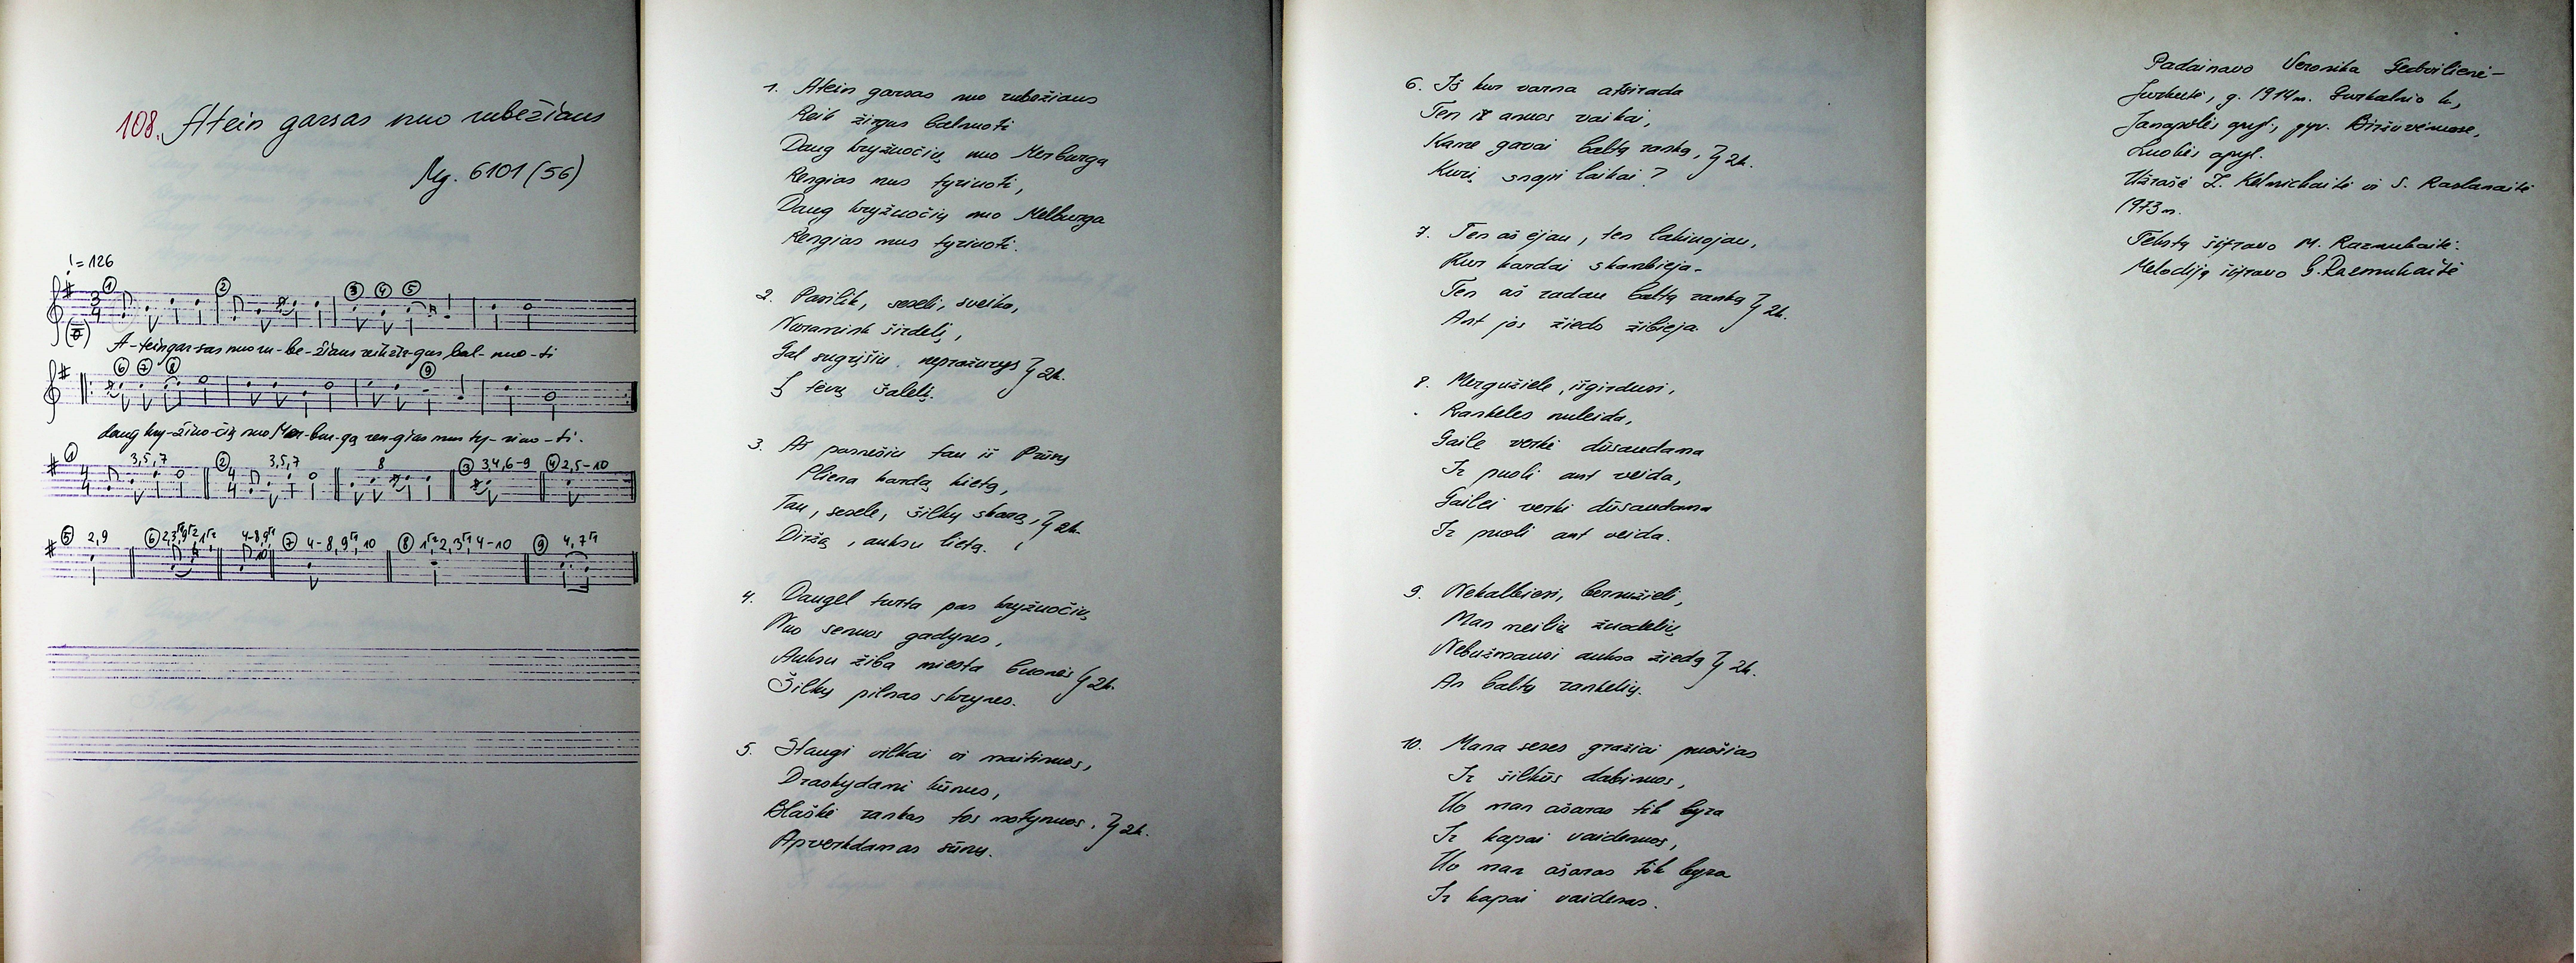 108. Atein garsas nuo rubežiaus
Mg. 6101 (56)
♩ = 126
① ② ③ ④ ⑤
3/4
A-tein gar-sas nuo ru-be-žiaus reik žir-gus bal-nuo-ti
⑥ ⑦ ⑧ ⑨
daug kry-žiuo-čių nuo Mer-bur-ga ren-gias mus ty-rino-ti.
① 3,5,7 ② 3,5,7 8 ③ 3,4,6-9 ④ 2,5-10
4/4 4/4
⑤ 2,9 ⑥ ⑦ ⑧ ⑨
1. Atein garsas nuo rubežiaus
Reik žirgus balnuoti
Daug kryžuočių nuo Merburga
Rengias mus tyrinoti,
Daug kryžuočių nuo Melburga
Rengias mus tyrinoti.
2. Pasilik, sesele, sveika,
Nuramink širdelį,
Gal sugrįšiu nepražuvęs } 2k.
Į tėvų šalelį.
3. Aš parnešiu tau iš Prūsų
Pliena kardą kietą,
Tau, sesele, šilkų skarą, } 2k.
Diržą, auksu lietą.
4. Daugel turta pas kryžuočių
Nuo senuos gadynes,
Auksu žiba miesta buonės } 2k.
Šilkų pilnas skrynes.
5. Staugi vilkai ir maitinuos,
Draskydami kūnus,
Blaškė rankas tos motynuos, } 2k.
Apverkdamas sūnų.
6. Iš kur varna atsirada
Ten iš anuos vaikai,
Kame gavai baltą ranką, } 2k.
Kurį snapi laikai?
7. Ten aš ėjau, ten lakinojau,
Kur kardai skambieja.
Ten aš radau baltą ranką } 2k.
Ant jos žieds žibieja.
8. Mergužiele, išgirdusi,
Rankeles nuleida,
Gaile verkė dūsaudama
Ir puoli ant veida,
Gailei verki dūsaudama
Ir puoli ant veida.
9. Nekalbiesi, bernužieli,
Man meilių žuodelių
Nebužmausi auksa žiedą } 2k.
An baltų rankelių.
10. Mana seses gražiai puošias
Ir šilkūs dabinuos,
Uo man ašaras tik byra
Ir kapai vaidenuos,
Uo man ašaras tik byra
Ir kapai vaidenas.
Padainavo Veronika Gedvilienė-
Jurkutė, g. 1914 m. Gurkalnio k.,
Janapolės apyl., gyv. Biržuvėnuose,
Luokės apyl.
Užrašė Z. Kelmickaitė ir S. Raslanaitė
1973 m.
Tekstą šifravo M. Razmukaitė.
Melodiją šifravo G. Razmukaitė